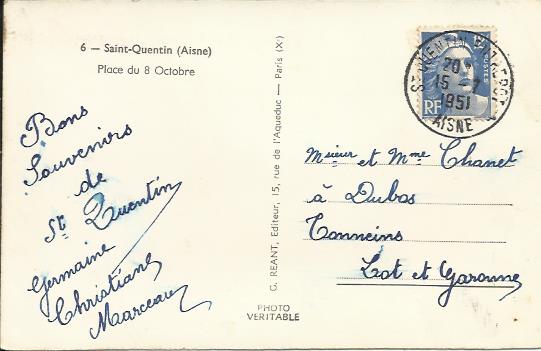 6 — Saint-Quentin (Aisne)
Place du 8 Octobre
Bons
Souvenirs
de
St Quentin
Germaine
Christiane
Marceau
G. REANT, Editeur, 15, rue de l'Aqueduc — Paris (X)
PHOTO
VERITABLE
POSTES
RF
ST QUENTIN
20
15 - 7
1951
AISNE
Msieur et Mme Chanet
à Dubos
Tonneins
Lot et Garonne